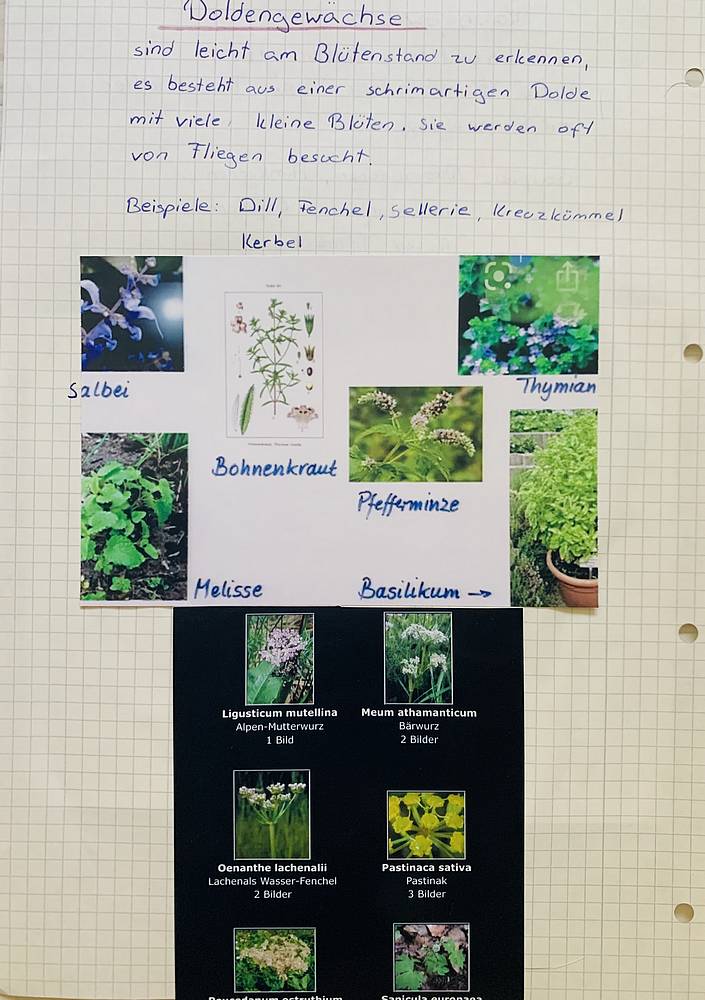 Doldengewächse
sind leicht am Blütenstand zu erkennen,
es besteht aus einer schrimartigen Dolde
mit viele kleine Blüten. Sie werden oft
von Fliegen besucht.
Beispiele: Dill, Fenchel, Sellerie, Kreuzkümmel
Kerbel
Salbei
Thymian
Bohnenkraut
Pfefferminze
Melisse
Basilikum →
Ligusticum mutellina
Alpen-Mutterwurz
1 Bild
Meum athamanticum
Bärwurz
2 Bilder
Oenanthe lachenalii
Lachenals Wasser-Fenchel
2 Bilder
Pastinaca sativa
Pastinak
3 Bilder
Peucedanum ostruthium
Sanicula europaea